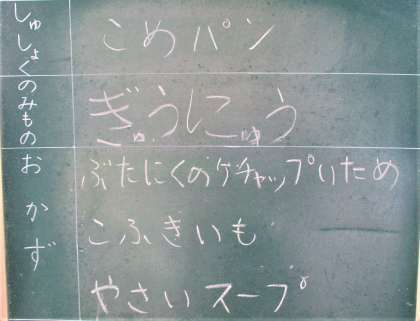 しゅしょく
こめパン
のみもの
ぎゅうにゅう
おかず
ぶたにくのケチャップいため
こふきいも
やさいスープ